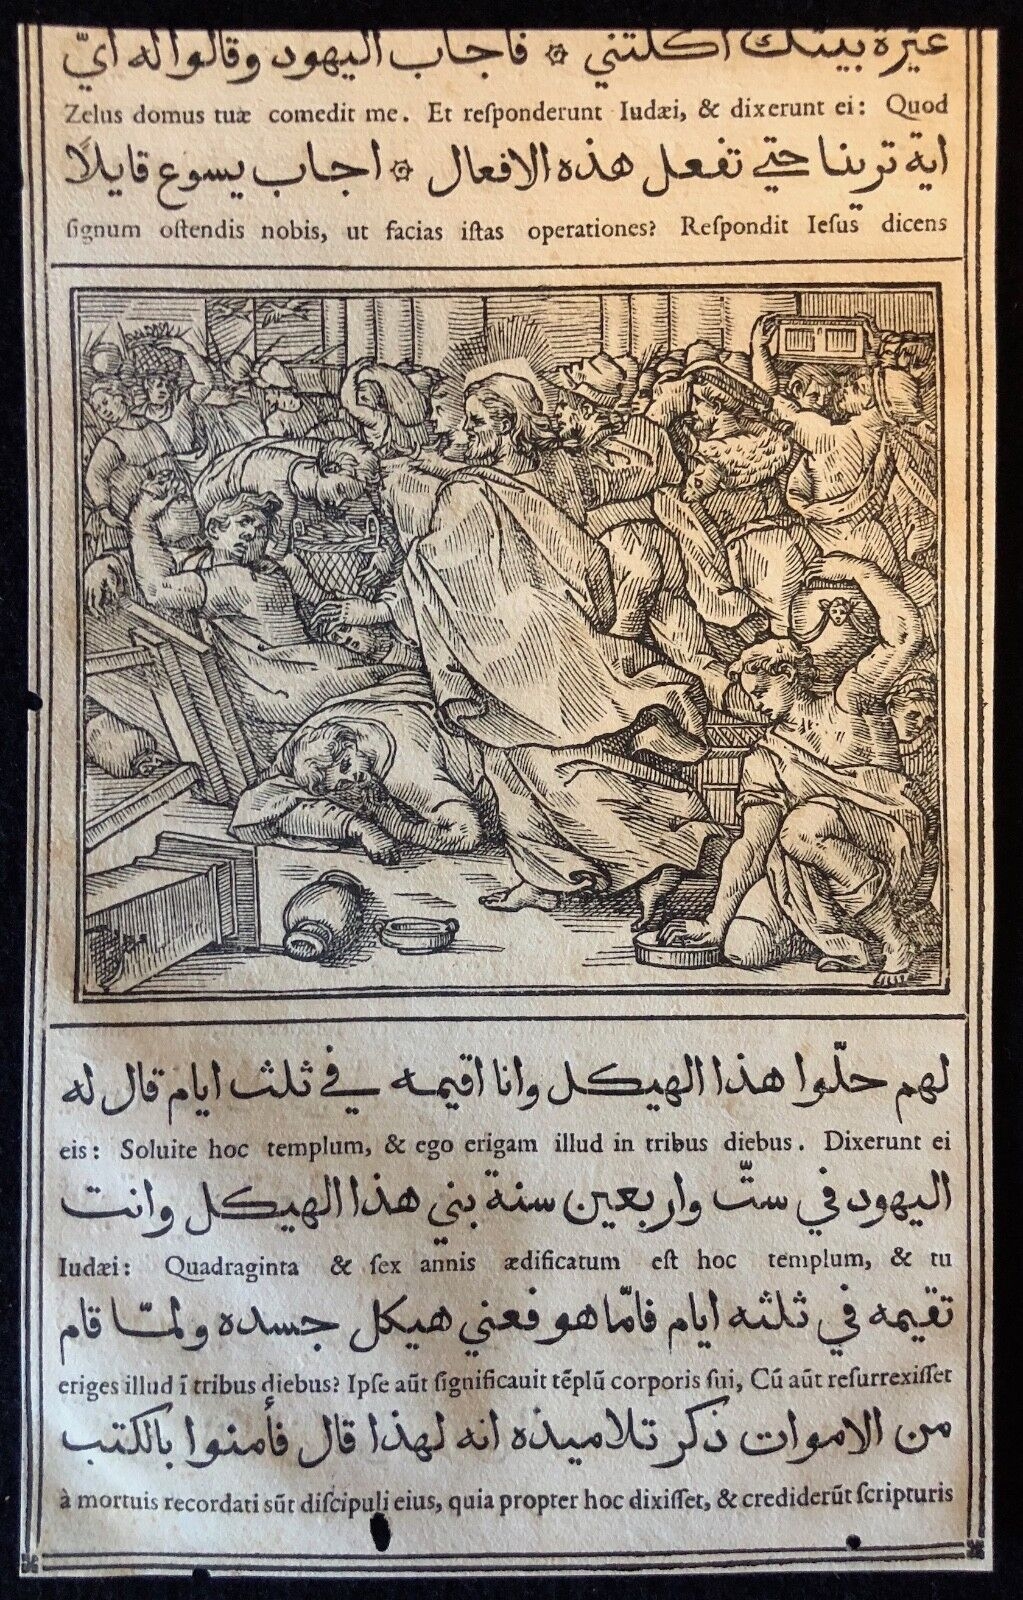 غيرة بيتك اكلتني ۞ فاجاب اليهود وقالوا له ايّ
Zelus domus tuæ comedit me. Et reſponderunt Iudæi, & dixerunt ei: Quod
اية ترينا حتي تفعل هذه الافعال ۞ اجاب يسوع قايلاً
ſignum oſtendis nobis, ut facias iſtas operationes? Reſpondit Ieſus dicens
لهم حلّوا هذا الهيكل وانا اقيمه في ثلث ايام قال له
eis: Soluite hoc templum, & ego erigam illud in tribus diebus. Dixerunt ei
اليهود في ستّ واربعين سنة بني هذا الهيكل وانت
Iudæi: Quadraginta & ſex annis ædificatum eſt hoc templum, & tu
تقيمه في ثلثه ايام فامّا هو فعني هيكل جسده ولمّا قام
eriges illud ī tribus diebus? Ipſe aūt ſignificauit tēplū corporis ſui, Cū aūt reſurrexiſſet
من الاموات ذكر تلاميذه انه لهذا قال فأمنوا بالكتب
à mortuis recordati sūt diſcipuli eius, quia propter hoc dixiſſet, & crediderūt ſcripturis